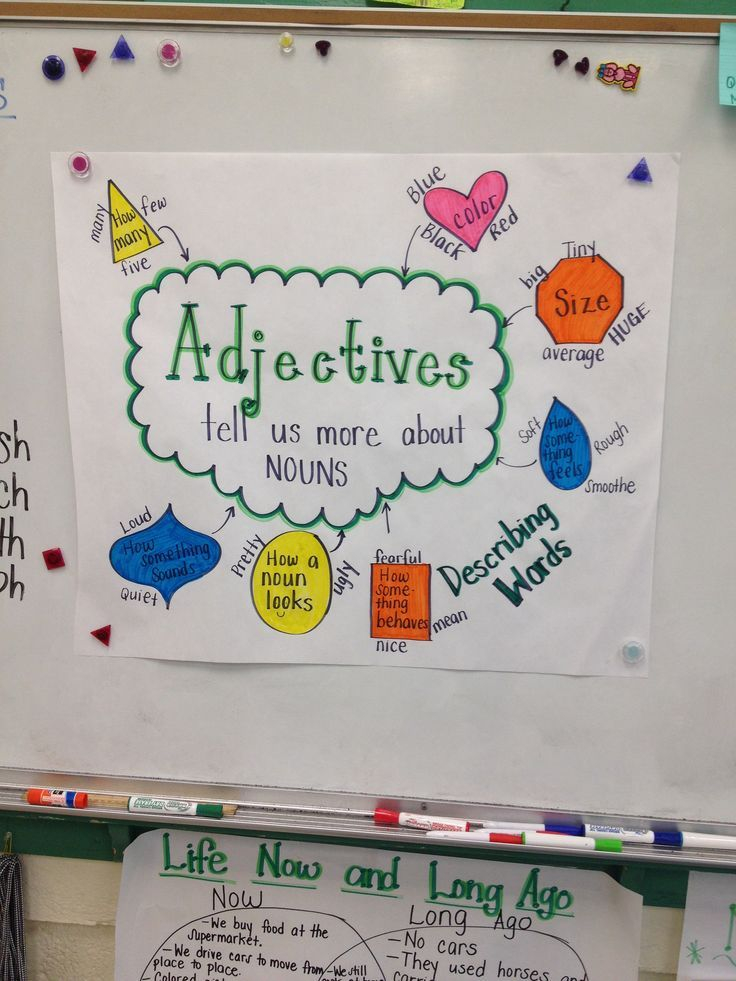 many
How
many
few
five
Blue
color
Black
Red
Tiny
big
Size
HUGE
average
Adjectives
tell us more about
NOUNS
Soft
How
some-
thing
feels
Rough
Smoothe
Loud
How
something
sounds
Quiet
Pretty
How a
noun
looks
ugly
fearful
How
some-
thing
behaves
mean
nice
Describing
Words
sh
ch
th
ph
Life Now and Long Ago
Now
Long Ago
-We buy food at the
supermarket.
-We drive cars to move from
place to place.
-Colored
-We still
-No cars
-They used horses and